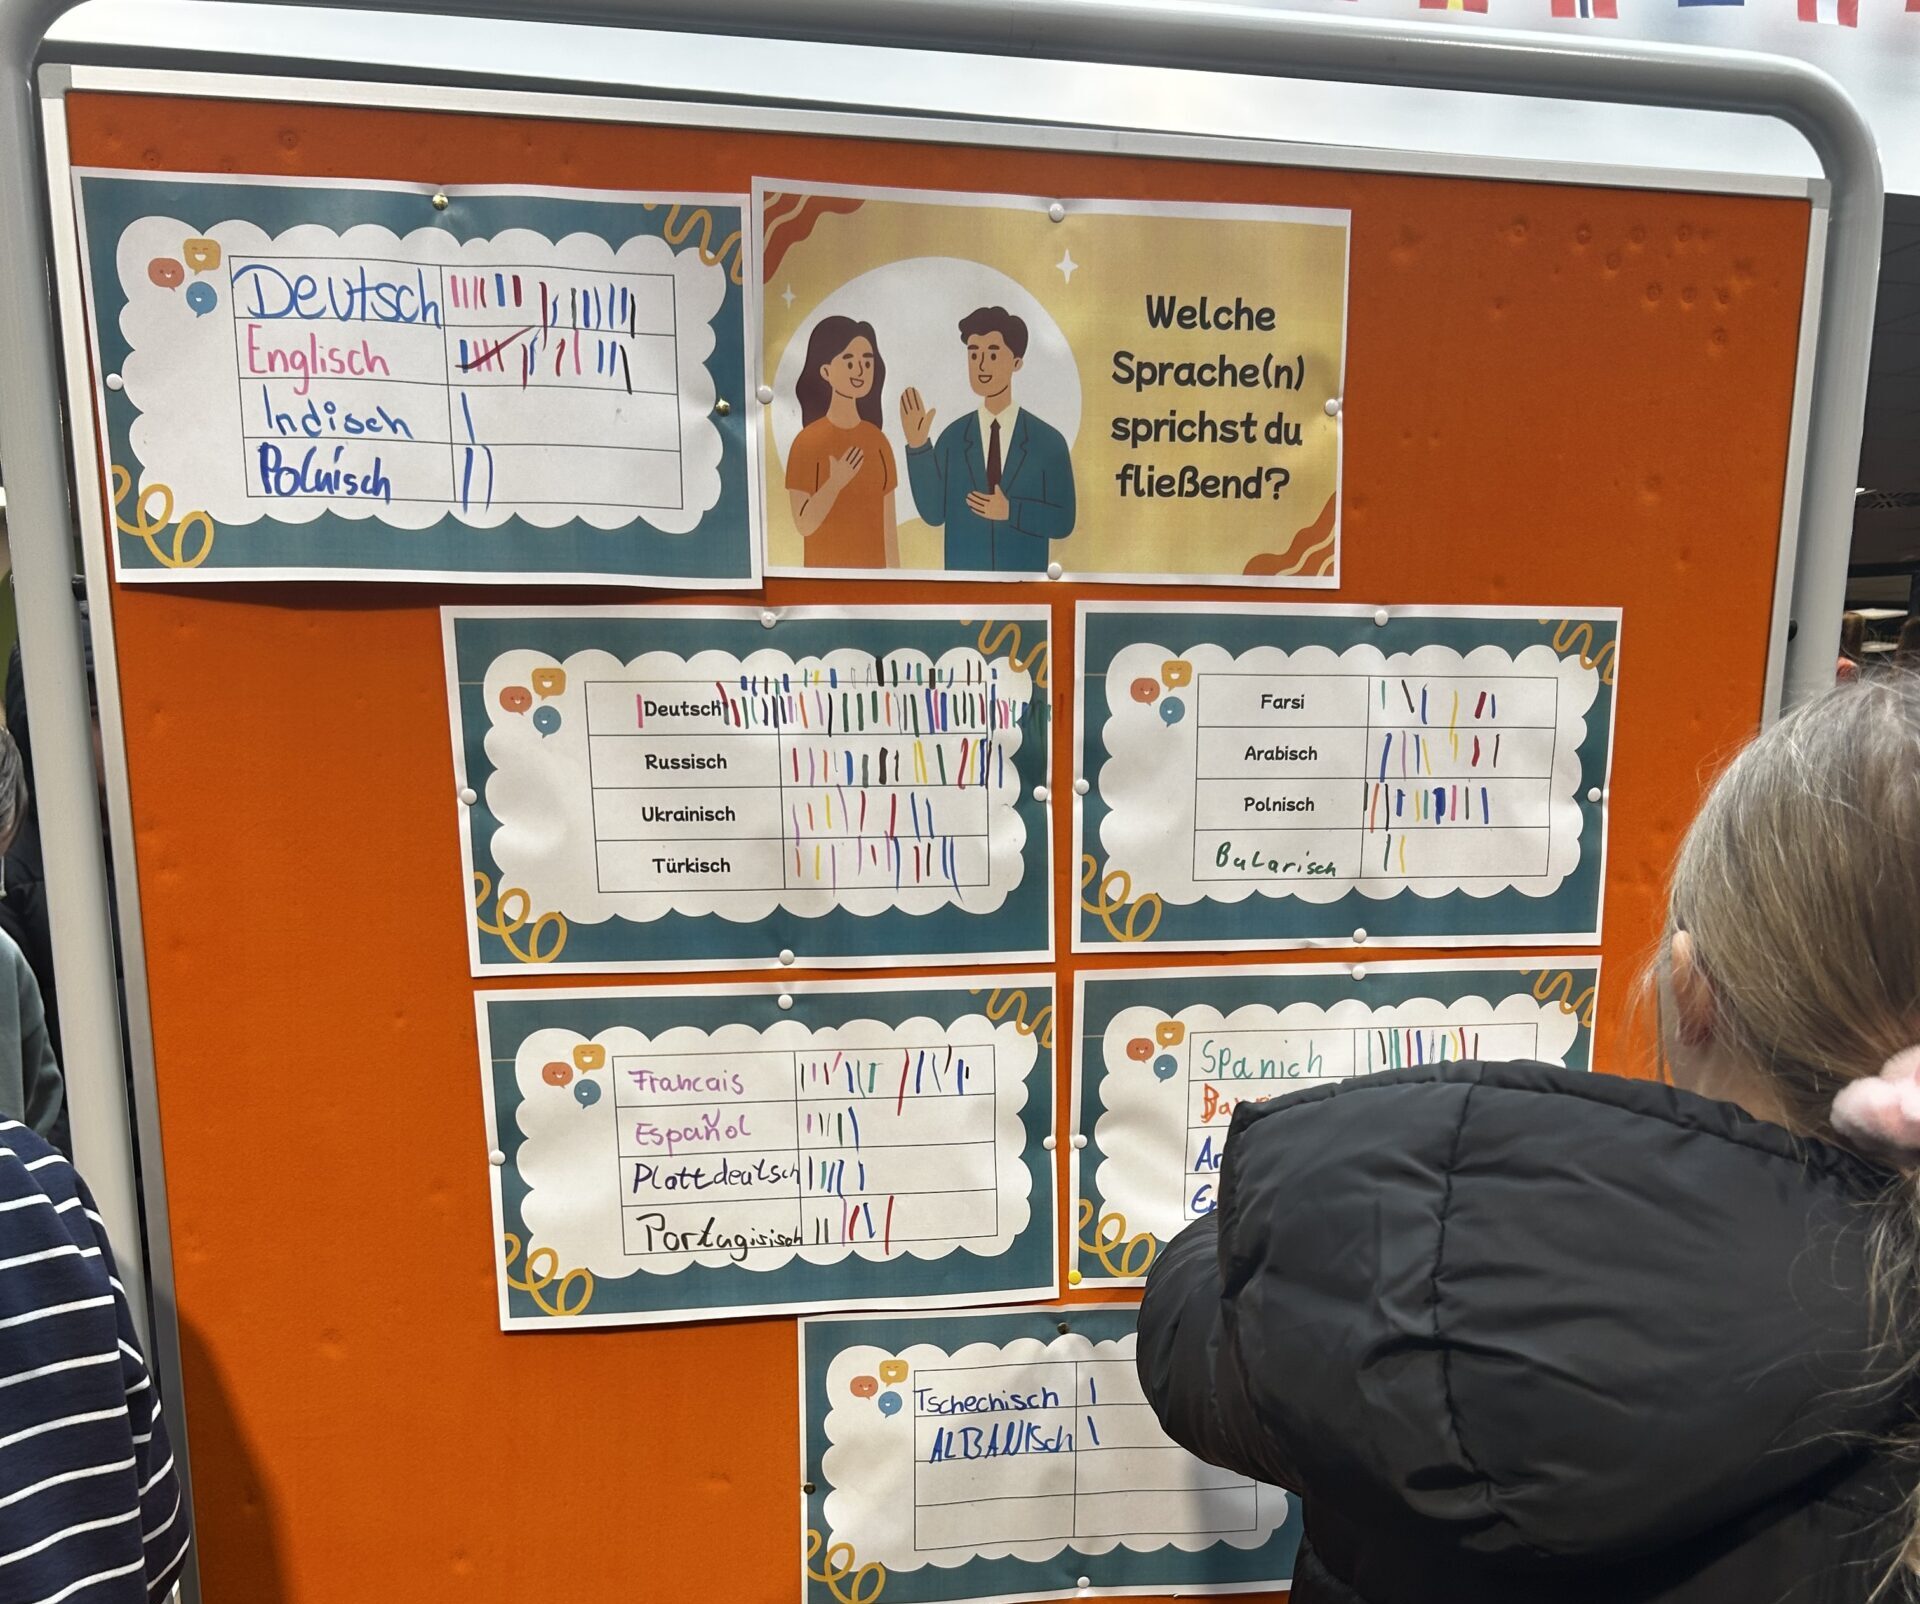 Deutsch
Englisch
Indisch
Polnisch
Welche
Sprache(n)
sprichst du
fließend?
Deutsch
Russisch
Ukrainisch
Türkisch
Farsi
Arabisch
Polnisch
Bularisch
Francais
Español
Plattdeutsch
Portugisisch
Spanich
Tschechisch
ALBANISch